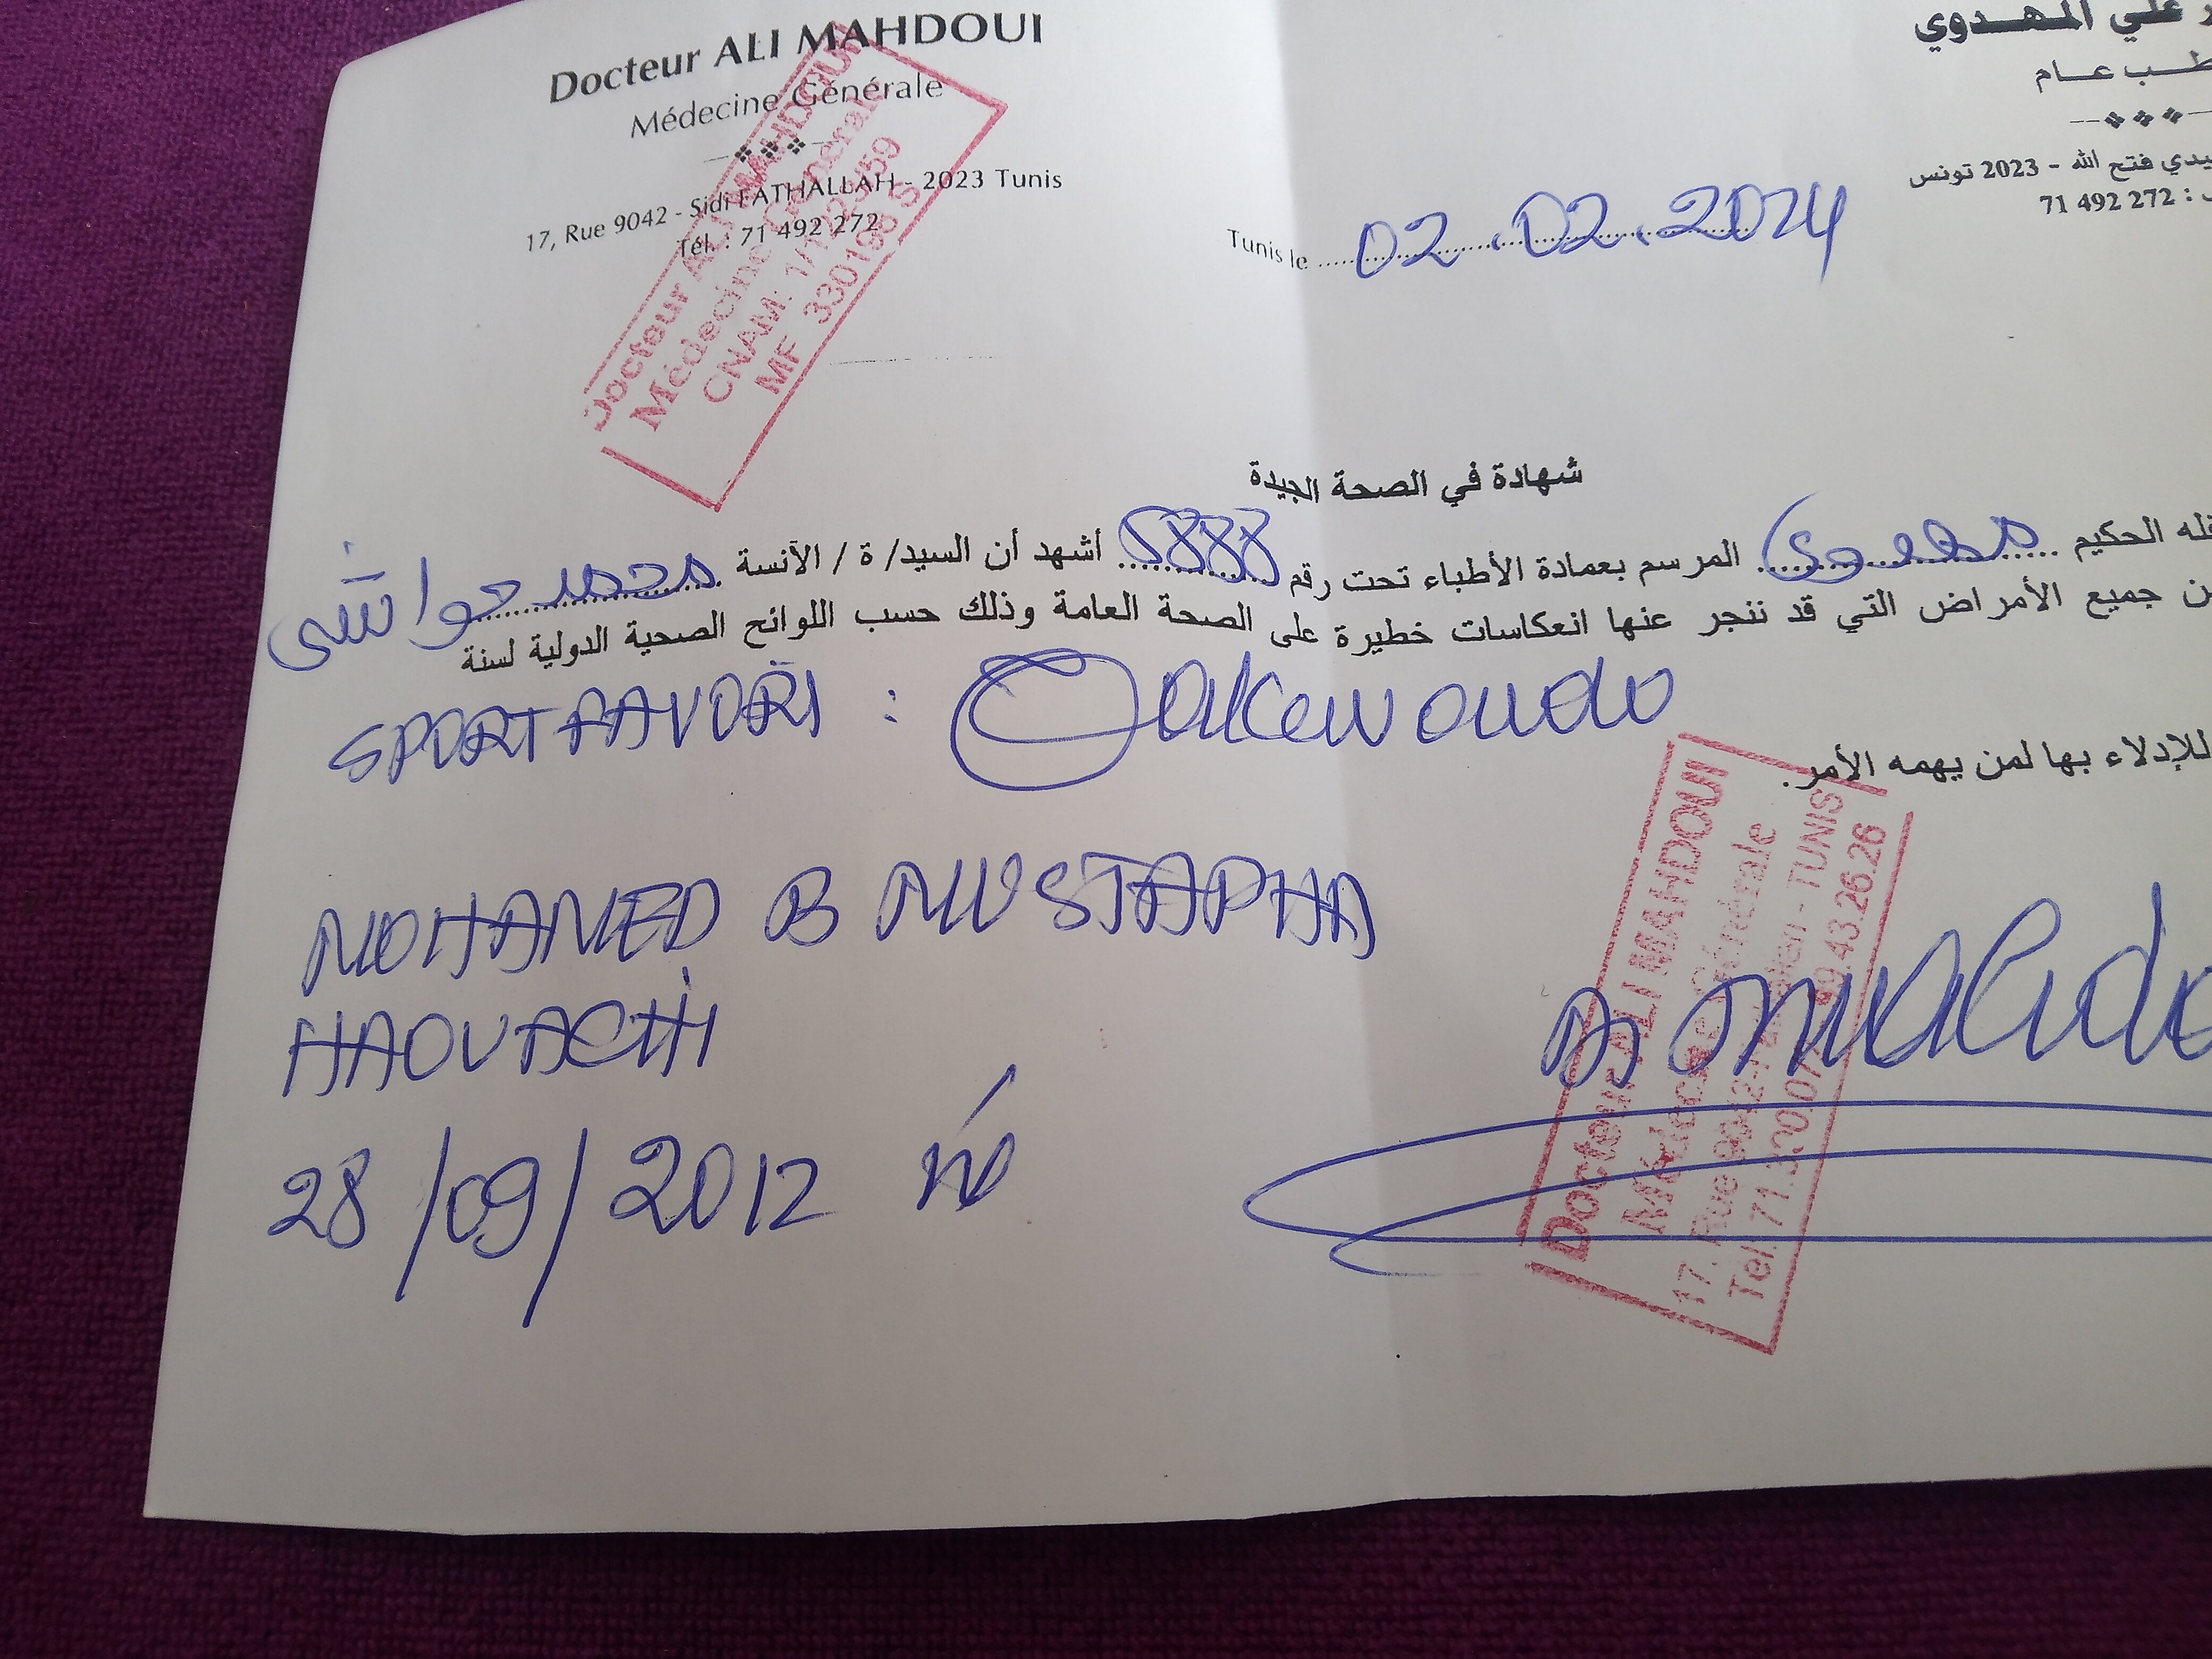 Docteur ALI MAHDOUI
Médecine Générale
17, Rue 9042 - Sidi FATHALLAH - 2023 Tunis
Tél. : 71 492 272
علي المهدوي
طب عام
سيدي فتح الله - 2023 تونس
: 71 492 272
Docteur ALI MAHDOUI
Médecine Générale
CNAM:
MF
Tunis le 02.02.2024
شهادة في الصحة الجيدة
الحكيم مهدوي المرسم بعمادة الأطباء تحت رقم 5888 أشهد أن السيد/ ة / الآنسة محمد حواشي
جميع الأمراض التي قد ننجر عنها انعكاسات خطيرة على الصحة العامة وذلك حسب اللوائح الصحية الدولية لسنة
SPORT FAVORI : Taekwondo
للإدلاء بها لمن يهمه الأمر.
MOHAMED B MUSTAPHA
HAOUACHI
28/09/2012
Docteur ALI MAHDOUI
Médecine Générale
17, Rue 9042 - TUNIS